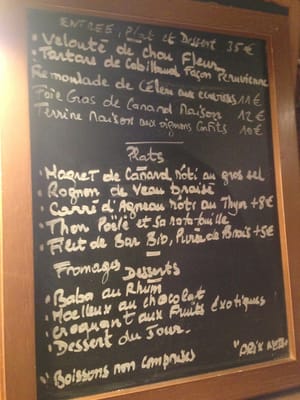 ENTREE, Plat et Dessert 35€
• Velouté de chou Fleur
• Tartare de Cabillaud Façon Peruvienne
Remoulade de Céleri aux ecrevisses 11€
Foie Gas de Canard Maison 12€
Terrine Maison aux oignons Confits 10€
Plats
• Magret de Canard Rôti au gros sel
• Rognon de Veau braisé
• Carré d'Agneau rôti au Thym +8€
• Thon Poêlé et sa ratatouille
• Filet de Bar Bio, Purée de Panais +5€
Fromages
Desserts
• Baba au Rhum
• Moelleux au chocolat
• Croquant aux Fruits Exotiques
• Dessert du Jour
• Boissons non comprises
"Prix Nets"